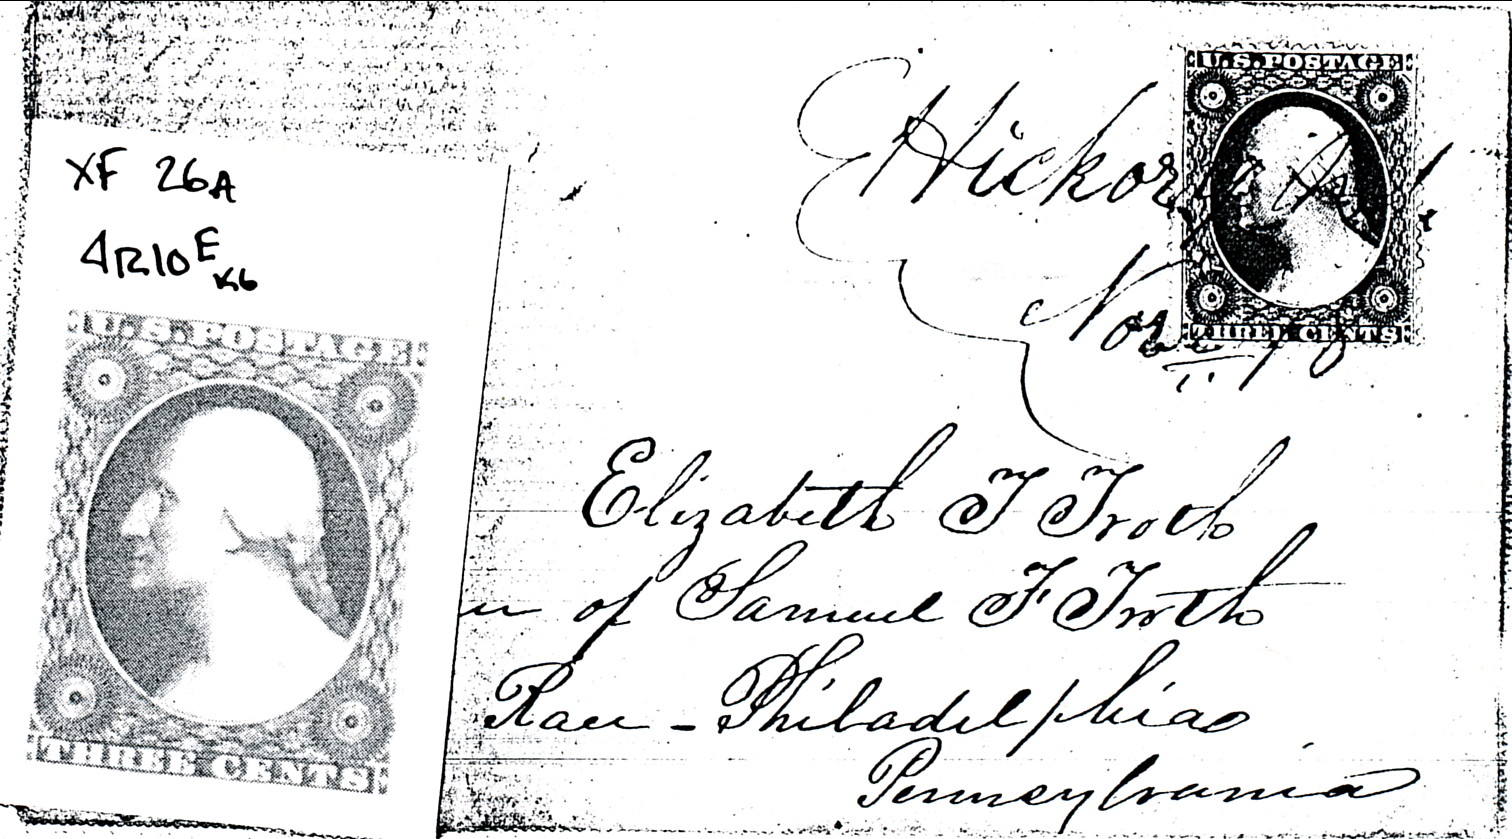 XF 26A
4R10E
K6
U.S. POSTAGE
THREE CENTS
Hickory
U.S. POSTAGE
Nov
THREE CENTS
Elizabeth T Troth
of Samuel F Troth
Race - Philadelphia
Pennsylvania